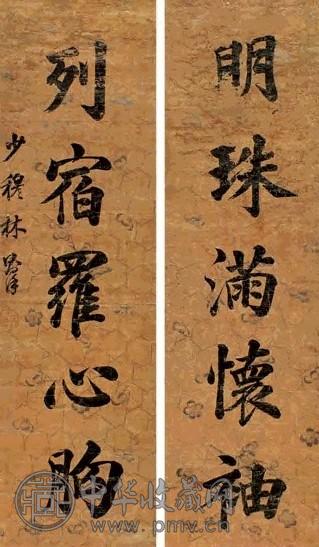 明珠滿懷袖
列宿羅心胸
少穆林則徐
中华收藏网
www.pmv.cn